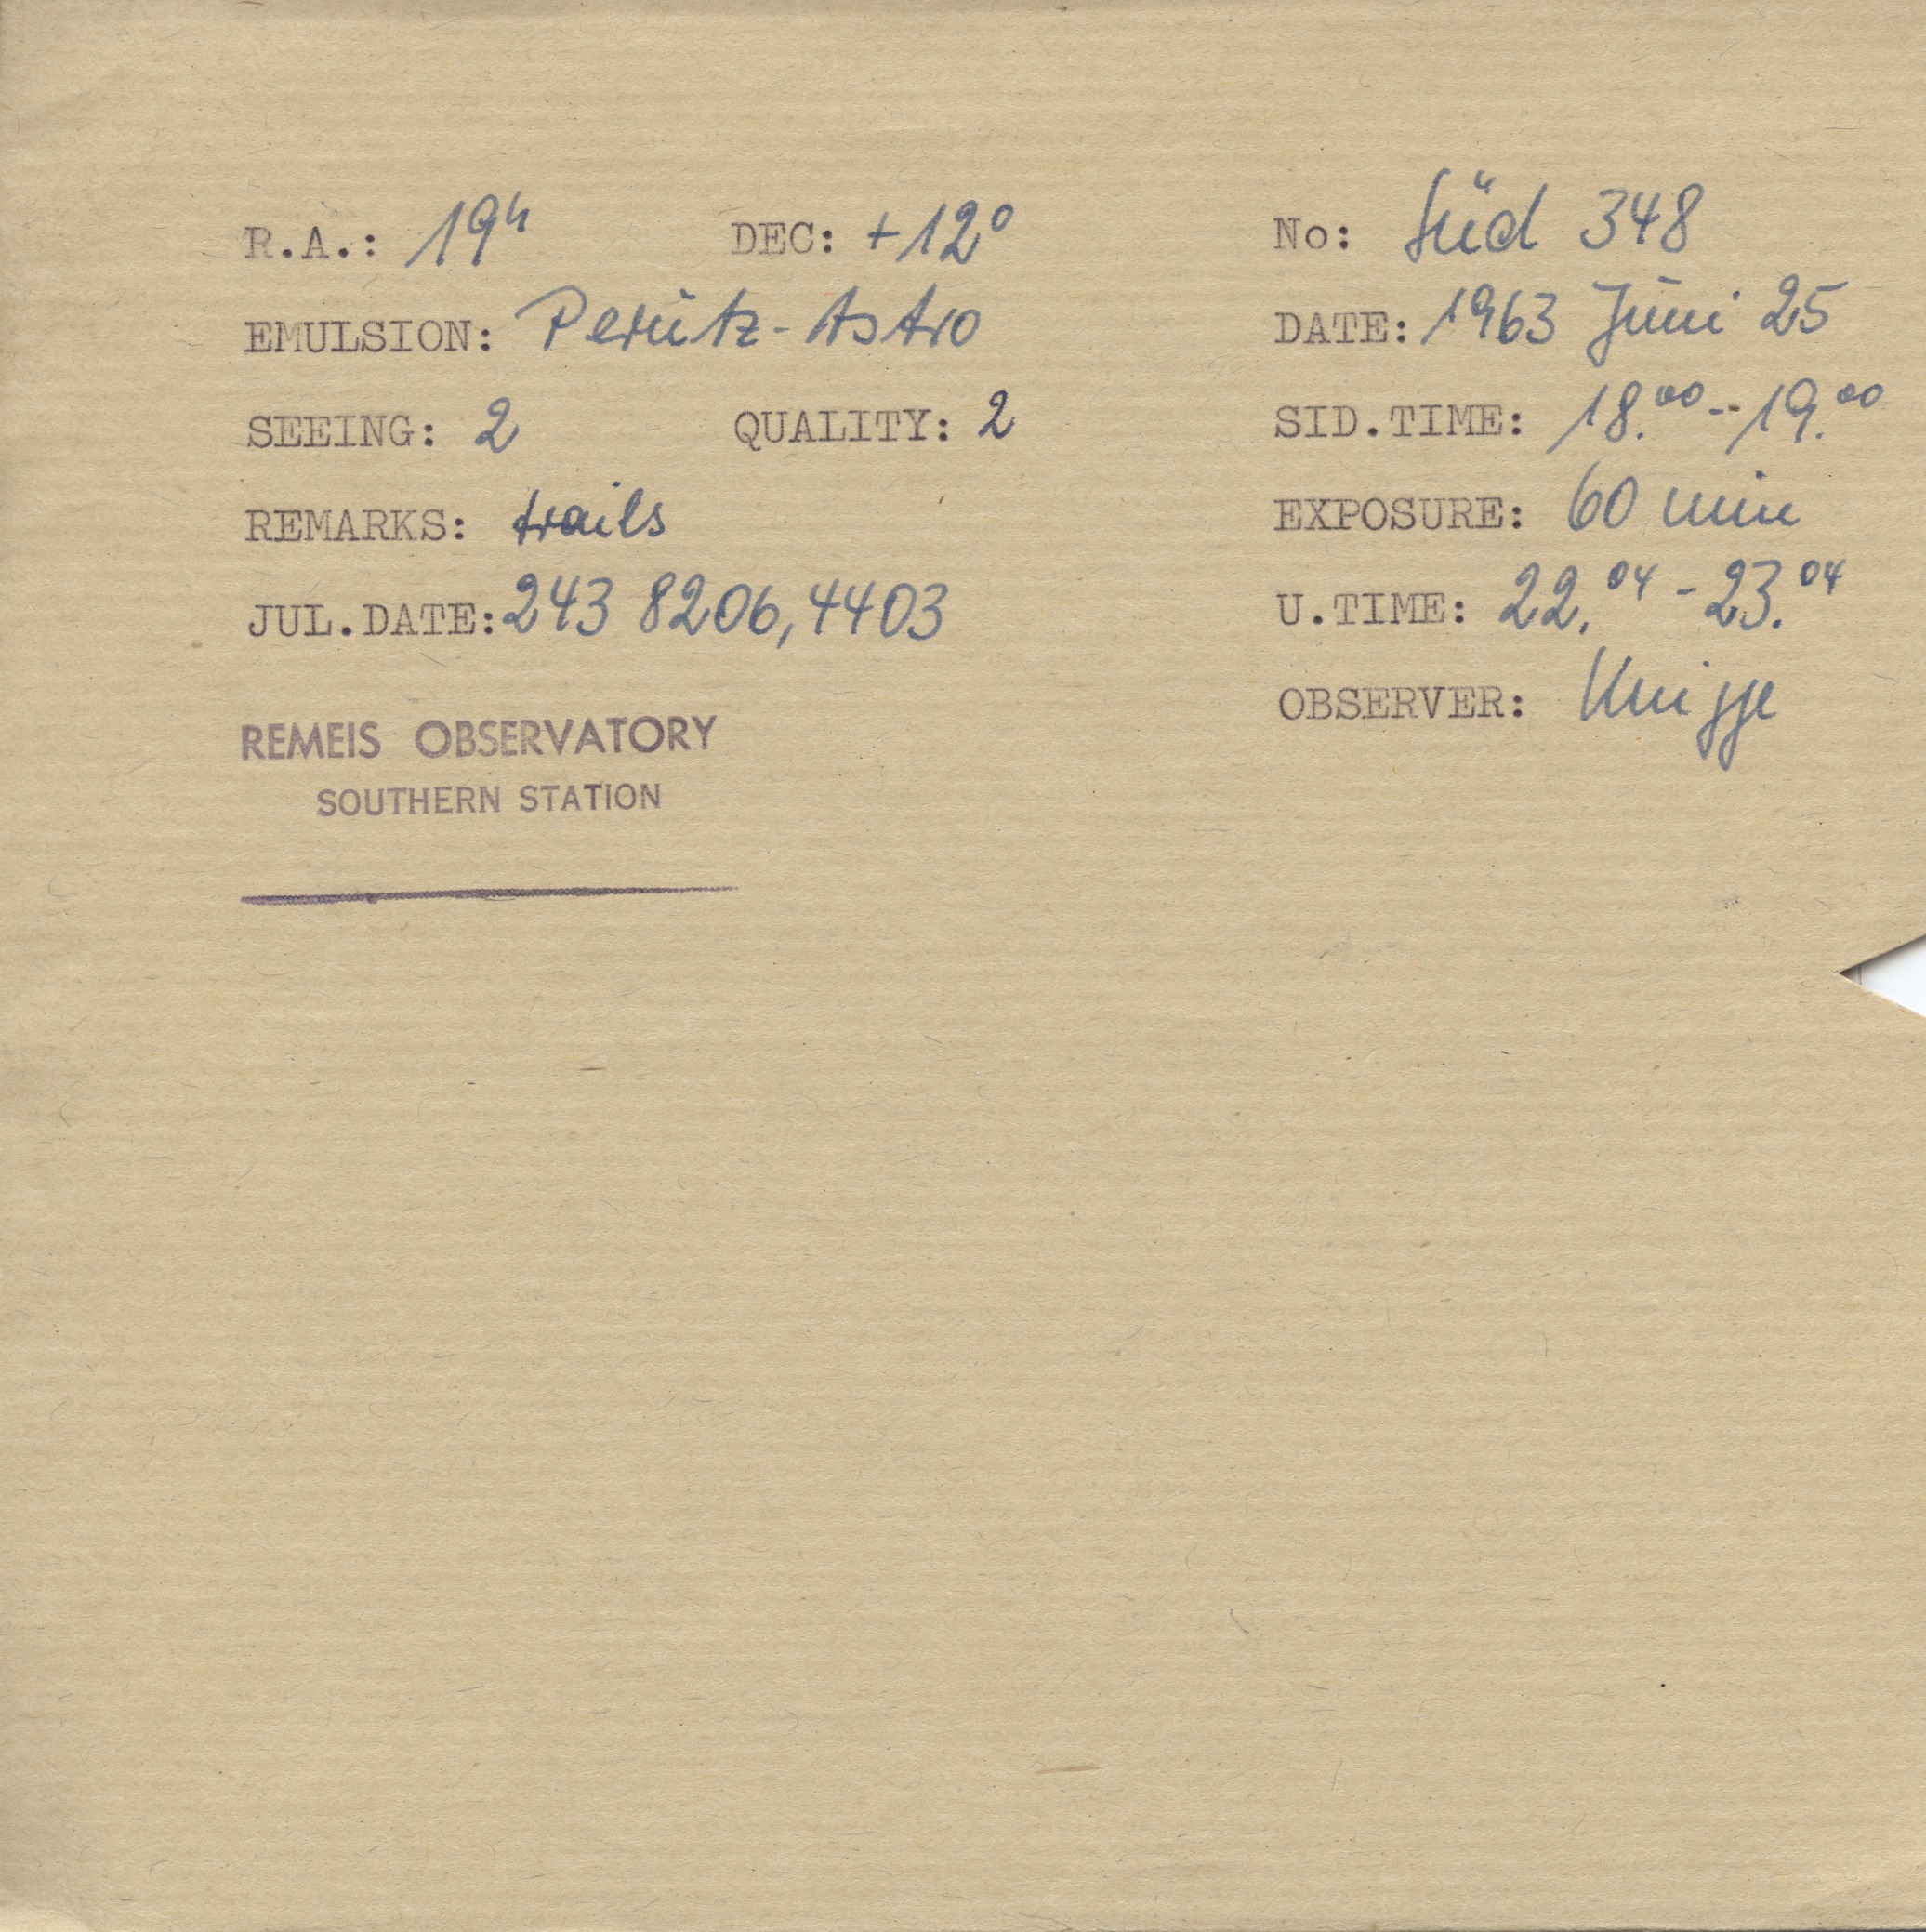 R.A.: 19ʰ DEC: +12° No: Süd 348
EMULSION: Perutz-Astro DATE: 1963 Juni 25
SEEING: 2 QUALITY: 2 SID.TIME: 18.⁰⁰--19.⁰⁰
REMARKS: trails EXPOSURE: 60 min
JUL.DATE: 243 8206,4403 U.TIME: 22.⁰⁴ - 23.⁰⁴
OBSERVER: Knigge
REMEIS OBSERVATORY
SOUTHERN STATION